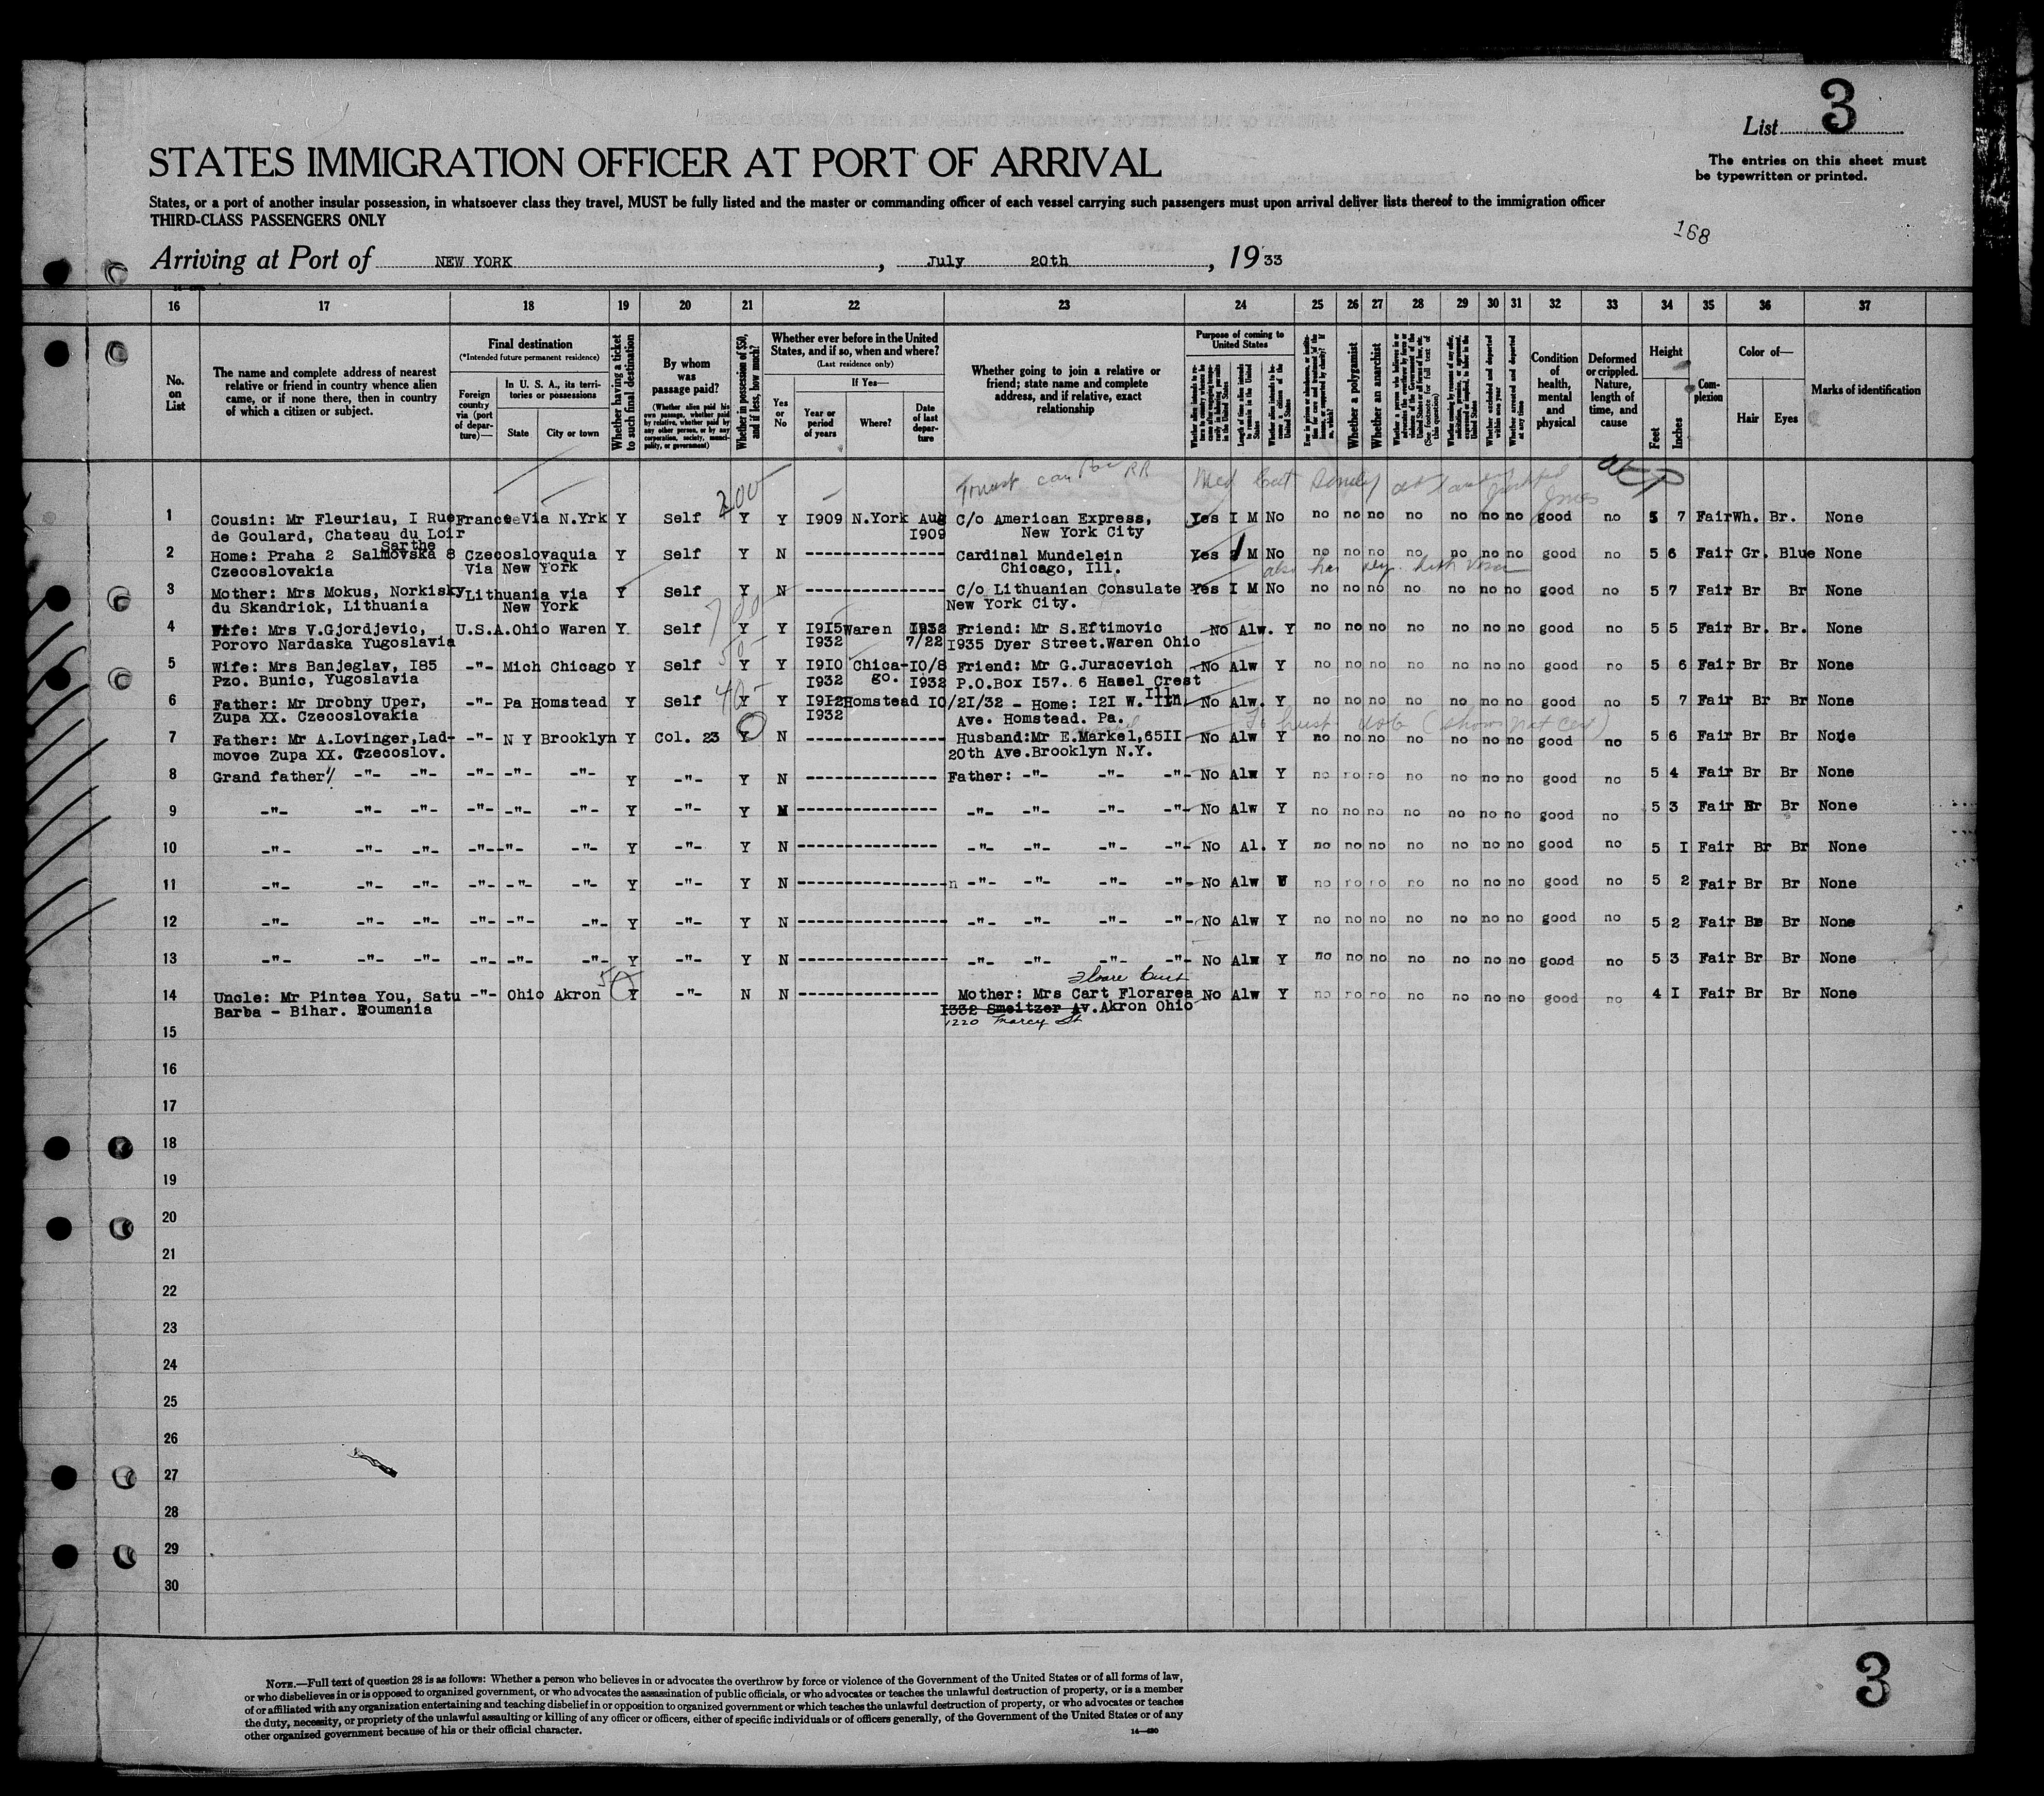 List 3
STATES IMMIGRATION OFFICER AT PORT OF ARRIVAL
The entries on this sheet must
be typewritten or printed.
States, or a port of another insular possession, in whatsoever class they travel, MUST be fully listed and the master or commanding officer of each vessel carrying such passengers must upon arrival deliver lists thereof to the immigration officer
THIRD-CLASS PASSENGERS ONLY
168
Arriving at Port of NEW YORK, July 20th, 1933
16 17 18 19 20 21 22 23 24 25 26 27 28 29 30 31 32 33 34 35 36 37
No. on List
The name and complete address of nearest relative or friend in country whence alien came, or if none there, then in country of which a citizen or subject.
Final destination
(*Intended future permanent residence)
Foreign country via (port of departure)—
In U. S. A., its territories or possessions
State
City or town
Whether having a ticket to such final destination
By whom was passage paid?
(Whether alien paid his own passage, whether paid by relative, whether paid by any other person, or by any corporation, society, municipality, or government)
Whether in possession of $50, and if less, how much?
Whether ever before in the United States, and if so, when and where?
(Last residence only)
Yes or No
If Yes—
Year or period of years
Where?
Date of last departure
Whether going to join a relative or friend; state name and complete address, and if relative, exact relationship
Purpose of coming to United States
Length of time alien intends to remain in the United States
Whether alien intends to become a citizen of the United States
Whether a polygamist
Whether an anarchist
Whether excluded and deported within one year
Whether arrested and deported at any time
Condition of health, mental and physical
Deformed or crippled. Nature, length of time, and cause
Height
Feet
Inches
Complexion
Color of—
Hair
Eyes
Marks of identification
200
1 Cousin: Mr Fleuriau, I Rue France Via N.Yrk Y Self Y Y I909 N.York Aug C/o American Express, Yes I M No no no no no no no no good no 5 7 Fair Wh. Br. None
de Goulard, Chateau du Loir I909 New York City
Sarthe
2 Home: Praha 2 Salmovska 8 Czecoslovaquia Y Self Y N ---------------- Cardinal Mundelein Yes M No no no no no no no no good no 5 6 Fair Gr. Blue None
Czecoslovakia Via New York Chicago, Ill.
3 Mother: Mrs Mokus, Norkisky Lithuania via Y Self Y N ---------------- C/o Lithuanian Consulate Yes I M No no no no no no no no good no 5 7 Fair Br Br None
du Skandrick, Lithuania New York New York City.
4 Wife: Mrs V.Gjordjevic, U.S.A. Ohio Waren Y Self Y Y I9I5 Waren I932 Friend: Mr S.Eftimovic No Alw. Y no no no no no no no good no 5 5 Fair Br. Br. None
Porovo Nardaska Yugoslavia I932 7/22 I935 Dyer Street.Waren Ohio
5 Wife: Mrs Banjeglav, I85 -"- Mich Chicago Y Self Y Y I9I0 Chica- I0/8 Friend: Mr G.Juracevich No Alw Y no no no no no no no good no 5 6 Fair Br Br None
Pzo. Bunic, Yugoslavia I932 go. I932 P.O.Box I57. 6 Hazel Crest
Illn
6 Father: Mr Drobny Uper, -"- Pa Homstead Y Self Y Y I9I2 Homstead I0/2I/32 - Home: I2I W. No Alw. Y no no no no no no no good no 5 7 Fair Br Br None
Zupa XX. Czecoslovakia I932 Ave. Homstead. Pa.
7 Father: Mr A.Lovinger,Lad- -"- N Y Brooklyn Y Col. 23 Y N ---------------- Husband:Mr E.Markel,65II No Alw Y no no no no no no no good no 5 6 Fair Br Br None
movce Zupa XX. Czecoslov. 20th Ave.Brooklyn N.Y.
8 Grand father -"- -"- -"- -"- -"- Y -"- Y N ---------------- Father: -"- -"- -"- No Alw Y no no no no no no no good no 5 4 Fair Br Br None
9 -"- -"- -"- -"- -"- -"- Y -"- Y N ---------------- -"- -"- -"- -"- No Alw Y no no no no no no no good no 5 3 Fair Br Br None
10 -"- -"- -"- -"- -"- -"- Y -"- Y N ---------------- -"- -"- -"- -"- No Al. Y no no no no no no no good no 5 I Fair Br Br None
11 -"- -"- -"- -"- -"- -"- Y -"- Y N ---------------- -"- -"- -"- -"- No Alw no no no no no no no good no 5 2 Fair Br Br None
12 -"- -"- -"- -"- -"- -"- Y -"- Y N ---------------- -"- -"- -"- -"- No Alw Y no no no no no no no good no 5 2 Fair Br Br None
13 -"- -"- -"- -"- -"- -"- Y -"- Y N ---------------- -"- -"- -"- -"- No Alw Y no no no no no no no good no 5 3 Fair Br Br None
14 Uncle: Mr Pintea You, Satu -"- Ohio Akron Y -"- N N ---------------- Mother: Mrs Cart Florarea No Alw Y no no no no no no no good no 4 I Fair Br Br None
Barba - Bihar. Roumania I332 Smeitzer Av.Akron Ohio
1220 Marcy St
15
16
17
18
19
20
21
22
23
24
25
26
27
28
29
30
NOTE.—Full text of question 28 is as follows: Whether a person who believes in or advocates the overthrow by force or violence of the Government of the United States or of all forms of law,
or who disbelieves in or is opposed to organized government, or who advocates the assassination of public officials, or who advocates or teaches the unlawful destruction of property, or is a member
of or affiliated with any organization entertaining and teaching disbelief in or opposition to organized government or which teaches the unlawful destruction of property, or who advocates or teaches
the duty, necessity, or propriety of the unlawful assaulting or killing of any officer or officers, either of specific individuals or of officers generally, of the Government of the United States or of any
other organized government because of his or their official character.
3